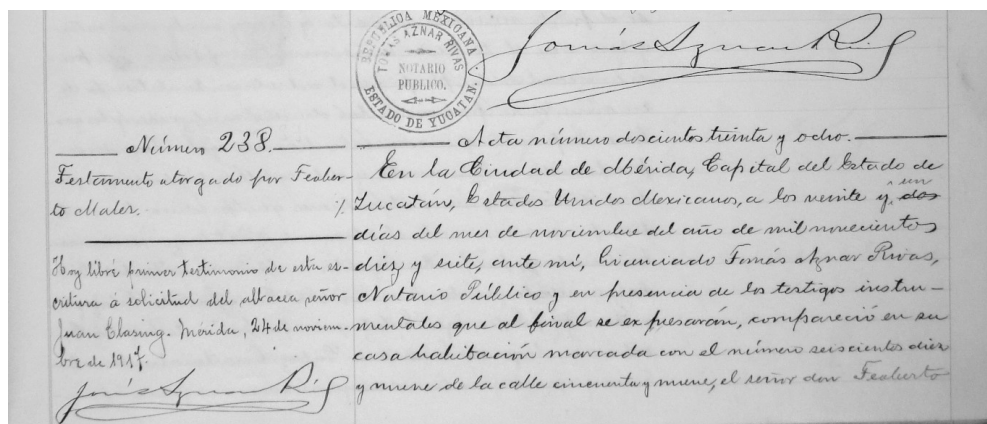 REPUBLICA MEXICANA.
TOMAS AZNAR RIVAS
NOTARIO
PUBLICO.
ESTADO DE YUCATAN.
Tomás Aznar Rivas
Número 238.
Testamento otorgado por Teober-
to Maler.
Hoy libré primer testimonio de esta es-
critura á solicitud del albacea señor
Juan Clasing. Mérida, 24 de noviem-
bre de 1917.
Tomás Aznar Rivas
Acta número doscientos treinta y ocho.
En la Ciudad de Mérida, Capital del Estado de
Yucatán, Estados Unidos Mexicanos, a los veinte y un dos
días del mes de noviembre del año de mil novecientos
diez y siete, ante mí, Licenciado Tomás Aznar Rivas,
Notario Público y en presencia de los testigos instru-
mentales que al final se expresarán, compareció en su
casa habitación marcada con el número seiscientos diez
y nueve de la calle cincuenta y nueve, el señor don Teoberto